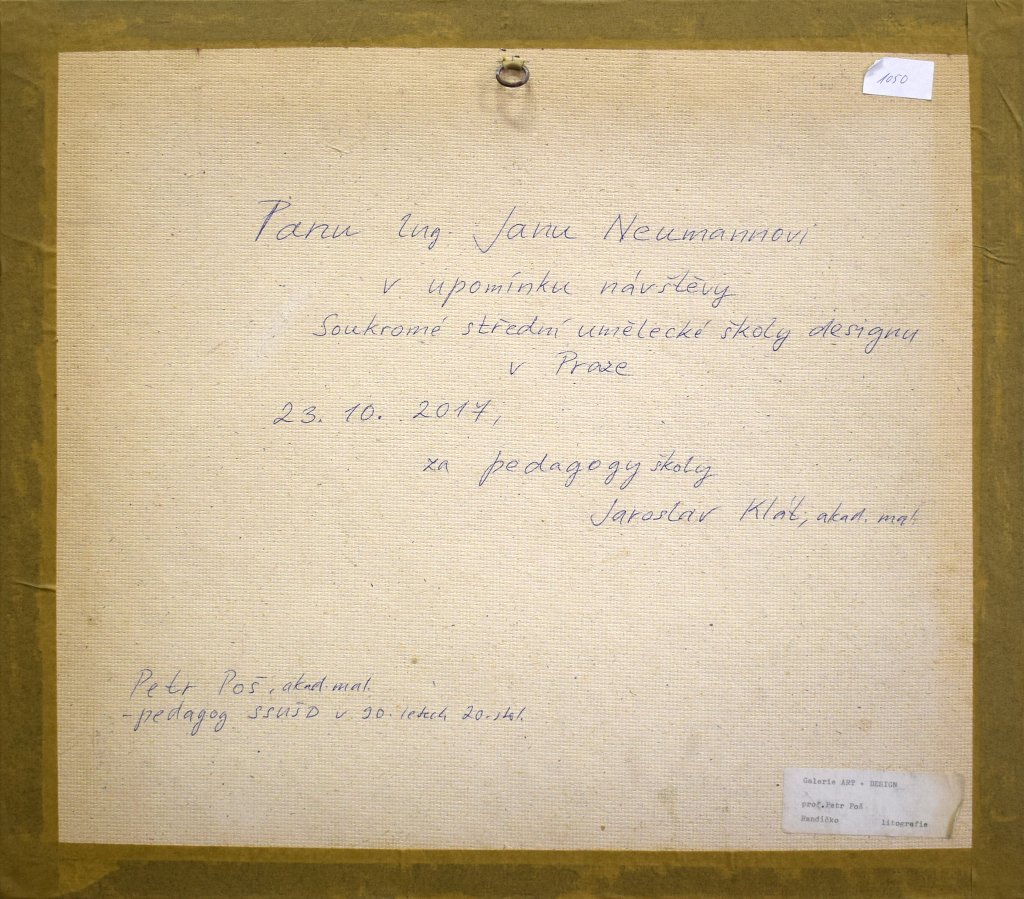 1050
Panu Ing. Janu Neumannovi
v upomínku návštěvy
Soukromé střední umělecké školy designu
v Praze
23. 10. 2017,
za pedagogy školy
Jaroslav Klát, akad. mal.
Petr Poš, akad. mal.
- pedagog SSUŠD v 90. letech 20. stol.
Galerie ART + DESIGN
prof. Petr Poš
Randíčko litografie